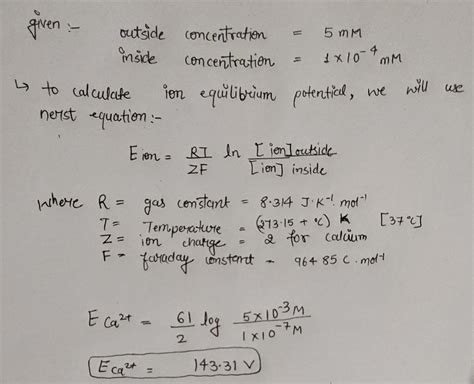 given :-
outside concentration = 5 mM
inside concentration = 1 x 10⁻⁴ mM
↳ to calculate ion equilibrium potential, we will use
nerst equation :-
E ion = RT/ZF ln [ion] outside/[ion] inside
where R = gas constant = 8.314 J·K⁻¹·mol⁻¹
T = Temperature = (273.15 + °C) K [37°C]
Z = ion charge = 2 for calcium
F = faraday constant = 96485 C·mol⁻¹
E Ca²⁺ = 61/2 log 5x10⁻³M/1x10⁻⁷M
E Ca²⁺ = 143.31 V